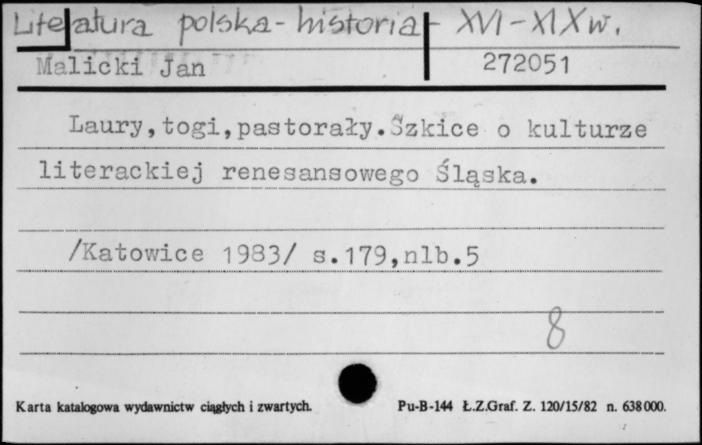 Literatura polska - historia - XVI - XIX w.
Malicki Jan 272051
Laury,togi,pastorały.Szkice o kulturze
literackiej renesansowego Śląska.
/Katowice 1983/ s.179,nlb.5
8
Karta katalogowa wydawnictw ciągłych i zwartych. Pu-B-144 Ł.Z.Graf. Z. 120/15/82 n. 638000.